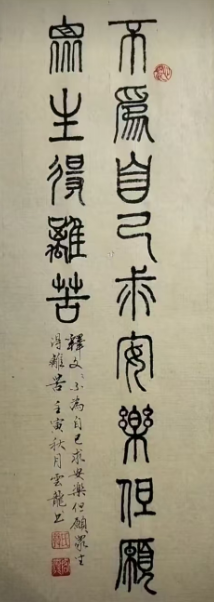 不為自己求安樂但願
眾生得離苦
釋文不為自己求安樂但願眾生
得離苦壬寅秋月雲龍書